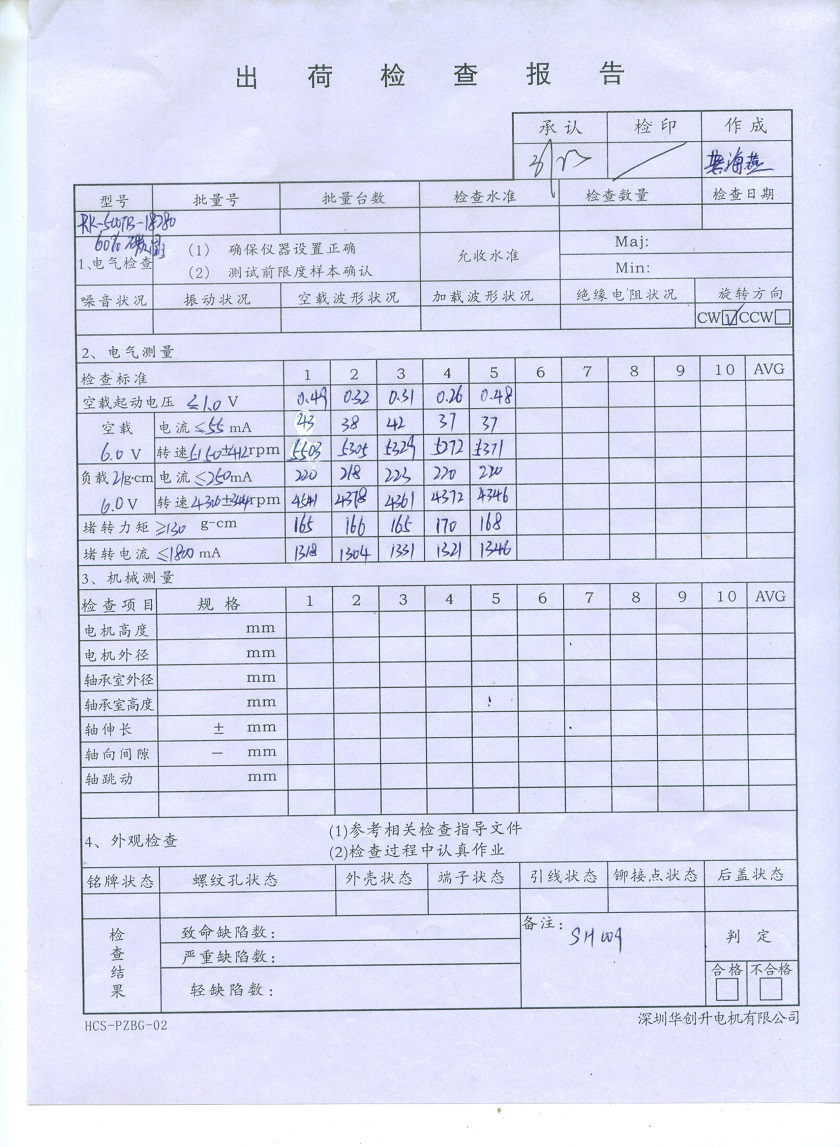 出荷检查报告
承认 检印 作成
樊海燕
型号 批量号 批量台数 检查水准 检查数量 检查日期
RK-500TB-18280
60%
1、电气检查 (1) 确保仪器设置正确 允收水准 Maj:
(2) 测试前限度样本确认 Min:
噪音状况 振动状况 空载波形状况 加载波形状况 绝缘电阻状况 旋转方向
CW☑CCW□
2、电气测量
检查标准 1 2 3 4 5 6 7 8 9 10 AVG
空载起动电压 ≤1.0 V 0.49 0.32 0.31 0.26 0.48
空载 电流≤55 mA 43 38 42 37 37
6.0 V 转速5150±412rpm 5503 5305 5329 5272 5371
负载21g·cm 电流≤250mA 220 218 223 220 220
6.0 V 转速4306±344rpm 4541 4378 4361 4372 4346
堵转力矩≥130 g-cm 165 166 165 170 168
堵转电流≤1800 mA 1318 1304 1331 1321 1346
3、机械测量
检查项目 规格 1 2 3 4 5 6 7 8 9 10 AVG
电机高度 mm
电机外径 mm
轴承室外径 mm
轴承室高度 mm
轴伸长 ± mm
轴向间隙 － mm
轴跳动 mm
4、外观检查 (1)参考相关检查指导文件
(2)检查过程中认真作业
铭牌状态 螺纹孔状态 外壳状态 端子状态 引线状态 铆接点状态 后盖状态
检查结果 致命缺陷数: 备注: SH009 判定
严重缺陷数:
合格 不合格
轻缺陷数: □ □
HCS-PZBG-02 深圳华创升电机有限公司